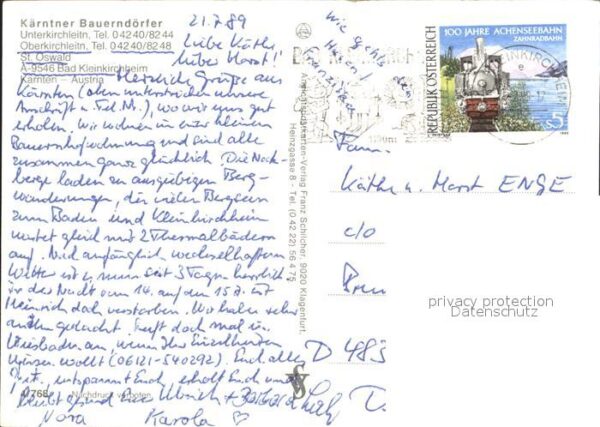 Kärntner Bauerndörfer
Unterkirchleitn, Tel. 0 42 40/82 44
Oberkirchleitn, Tel. 0 42 40/82 48
St. Oswald
A-9546 Bad Kleinkirchheim
Kärnten - Austria
21.7.89
Liebe Käthe,
lieber Horst!
Herzliche Grüße aus
Kärnten (oben unterstrichen unsere
Anschrift u. Tel. Nr.), wo wir uns gut
erholen. Wir wohnen in einer kleinen
Bauernhofwohnung und sind alle
zusammen ganz glücklich. Die Nock-
berge laden zu ausgiebigen Berg-
wanderungen, die vielen Bergseen
zum Baden und Kleinkirchheim
wartet gleich mit 2 Thermalbädern
auf. Nach anfänglich wechselhaftem
Wetter ist es nun seit 3 Tagen herrlich
in der Nacht vom 14. auf den 15.7. ist
Heinrich doch verstorben. Wir haben sehr
an ihn gedacht. Ruft doch mal in
Wiesbaden an, wenn Ihr Einzelheiten
wissen wollt (06121-540292). Euch alles
Gute, entspannt Euch, erholt Euch und
bleibt gesund Eure Ulrich + Barbara
Nora Karola
4/768 Nachdruck verboten
Wie geht's dem
Ansichtskarten-Verlag Franz Schilcher, 9020 Klagenfurt,
Heinzgasse 8 - Tel. (0 42 22) 56 4 75
100 JAHRE ACHENSEEBAHN
ZAHNRADBAHN
REPUBLIK ÖSTERREICH
S 5
Fam.
Käthe u. Horst ENGE
c/o
D 483
privacy protection
Datenschutz